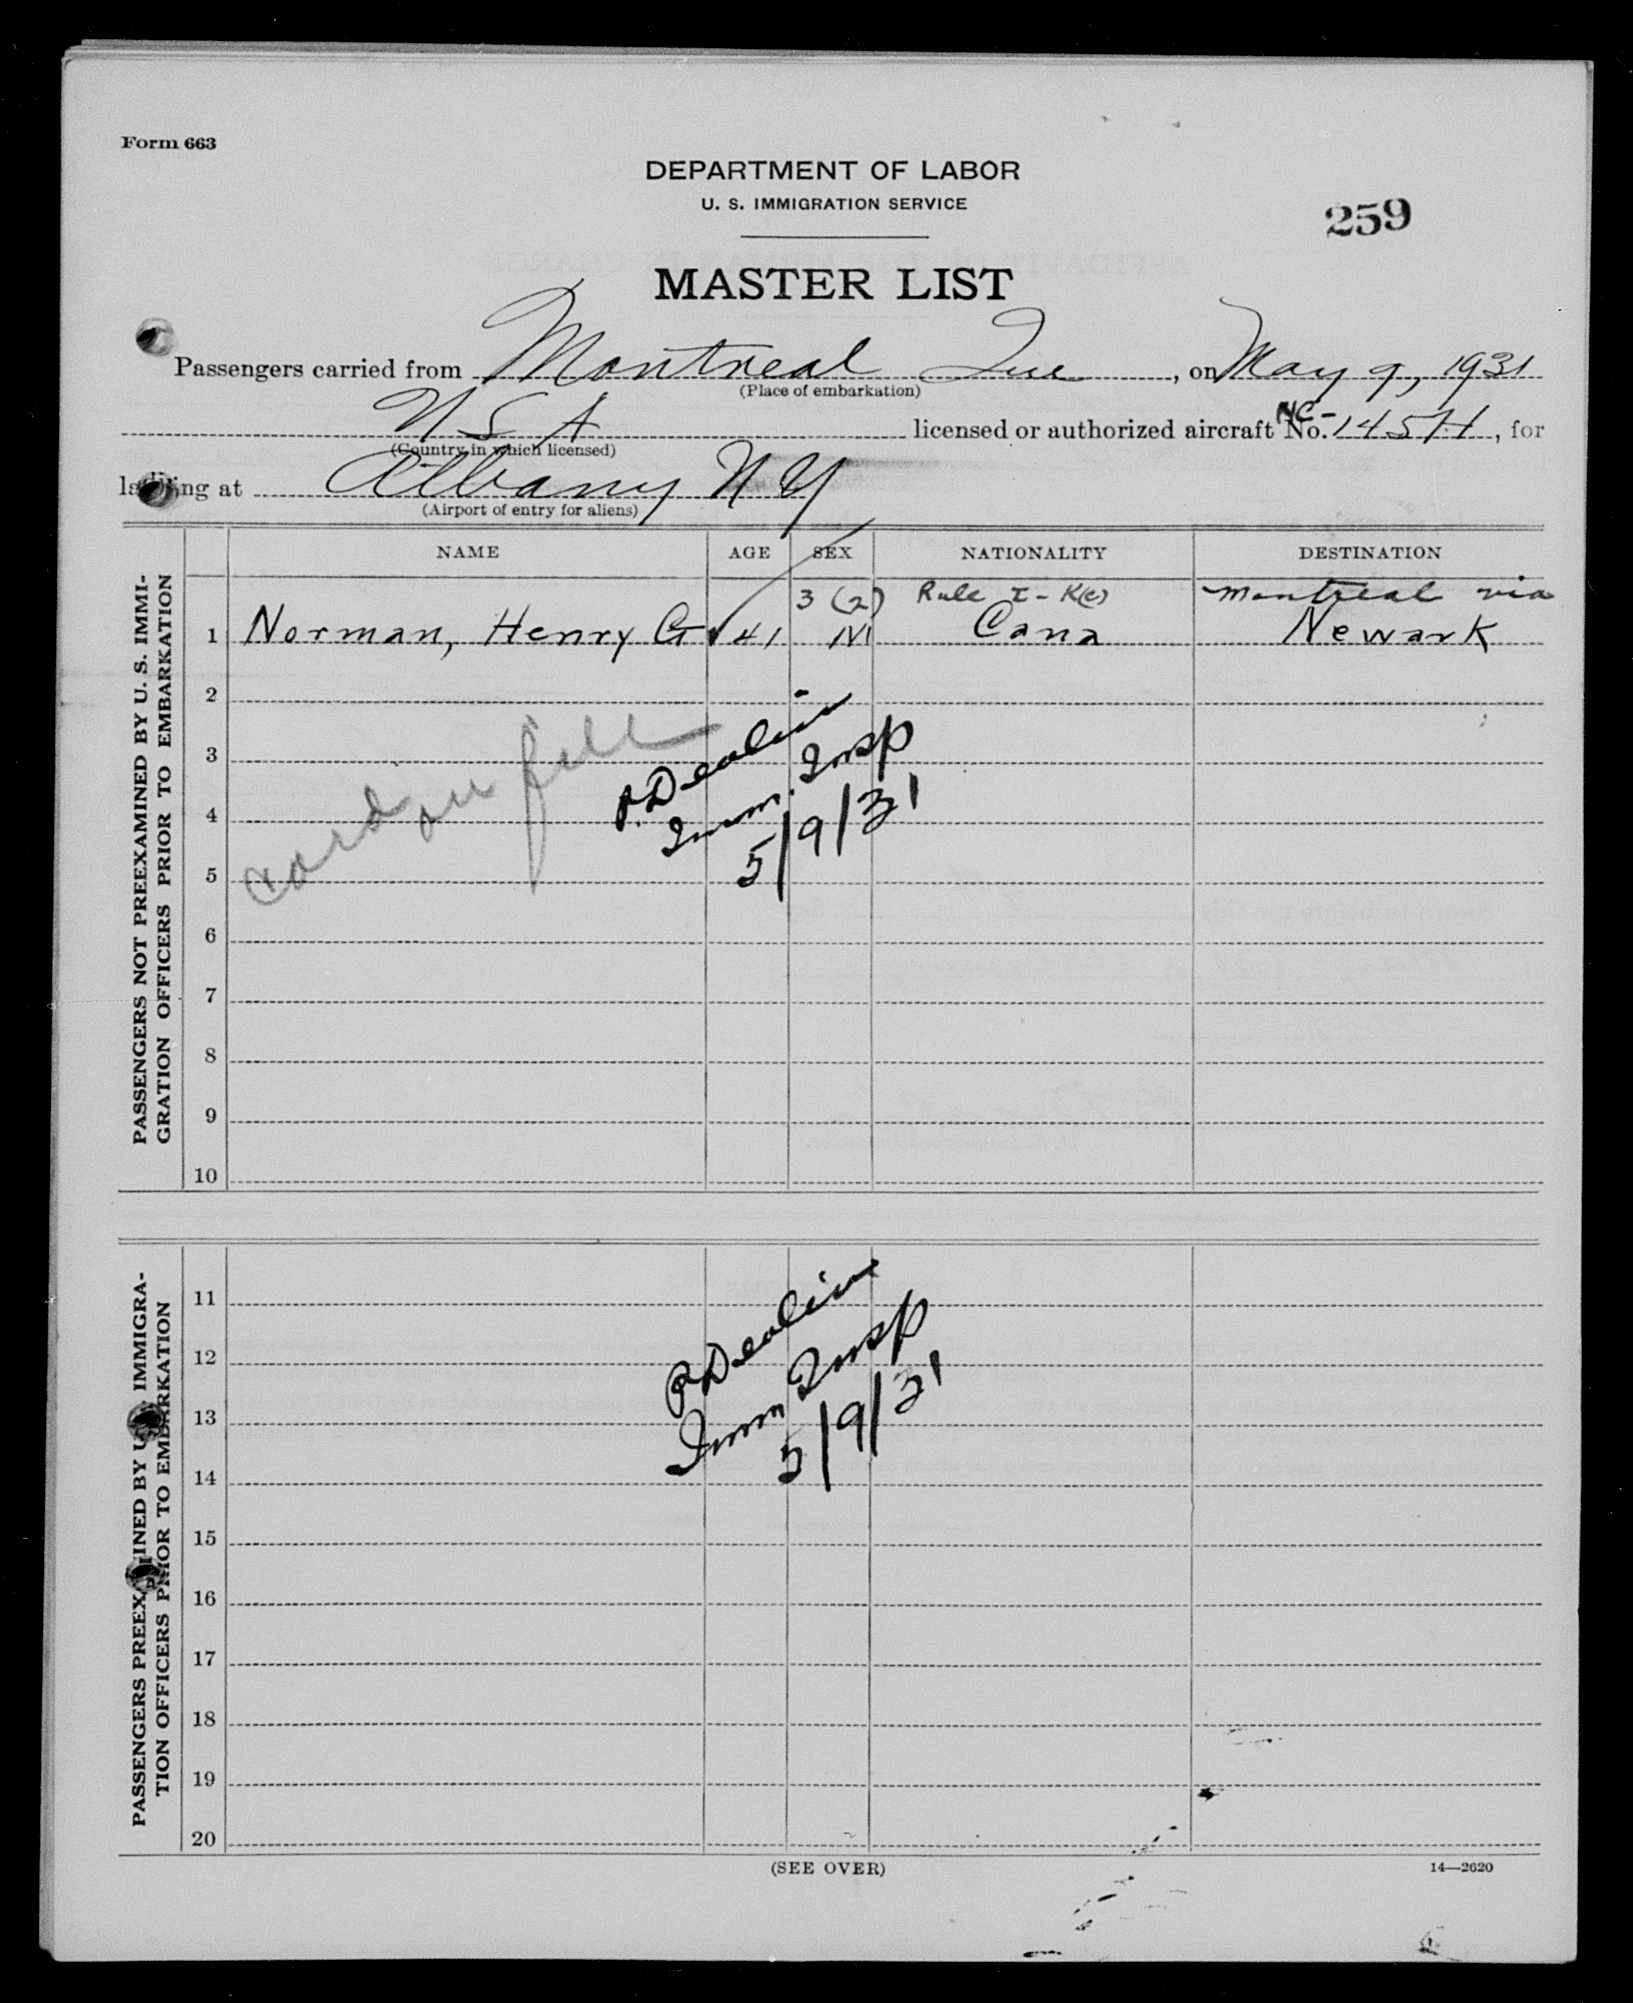 Form 663
DEPARTMENT OF LABOR
U. S. IMMIGRATION SERVICE
259
MASTER LIST
Passengers carried from Montreal Que, on May 9, 1931
(Place of embarkation)
U S A licensed or authorized aircraft NC- No. 145H, for
(Country in which licensed)
landing at Albany N Y
(Airport of entry for aliens)
NAME AGE SEX NATIONALITY DESTINATION
3 (2) Rule I - K(c) Montreal via
1 Norman, Henry G 41 M Cana Newark
2
3
4
5
6
7
8
9
10
card on file
P. Devlin
Imm. Insp
5/9/31
PASSENGERS NOT PREEXAMINED BY U. S. IMMI-
GRATION OFFICERS PRIOR TO EMBARKATION
11
12
13
14
15
16
17
18
19
20
P Devlin
Imm Insp
5/9/31
PASSENGERS PREEXAMINED BY U. S. IMMIGRA-
TION OFFICERS PRIOR TO EMBARKATION
(SEE OVER)
14—2620